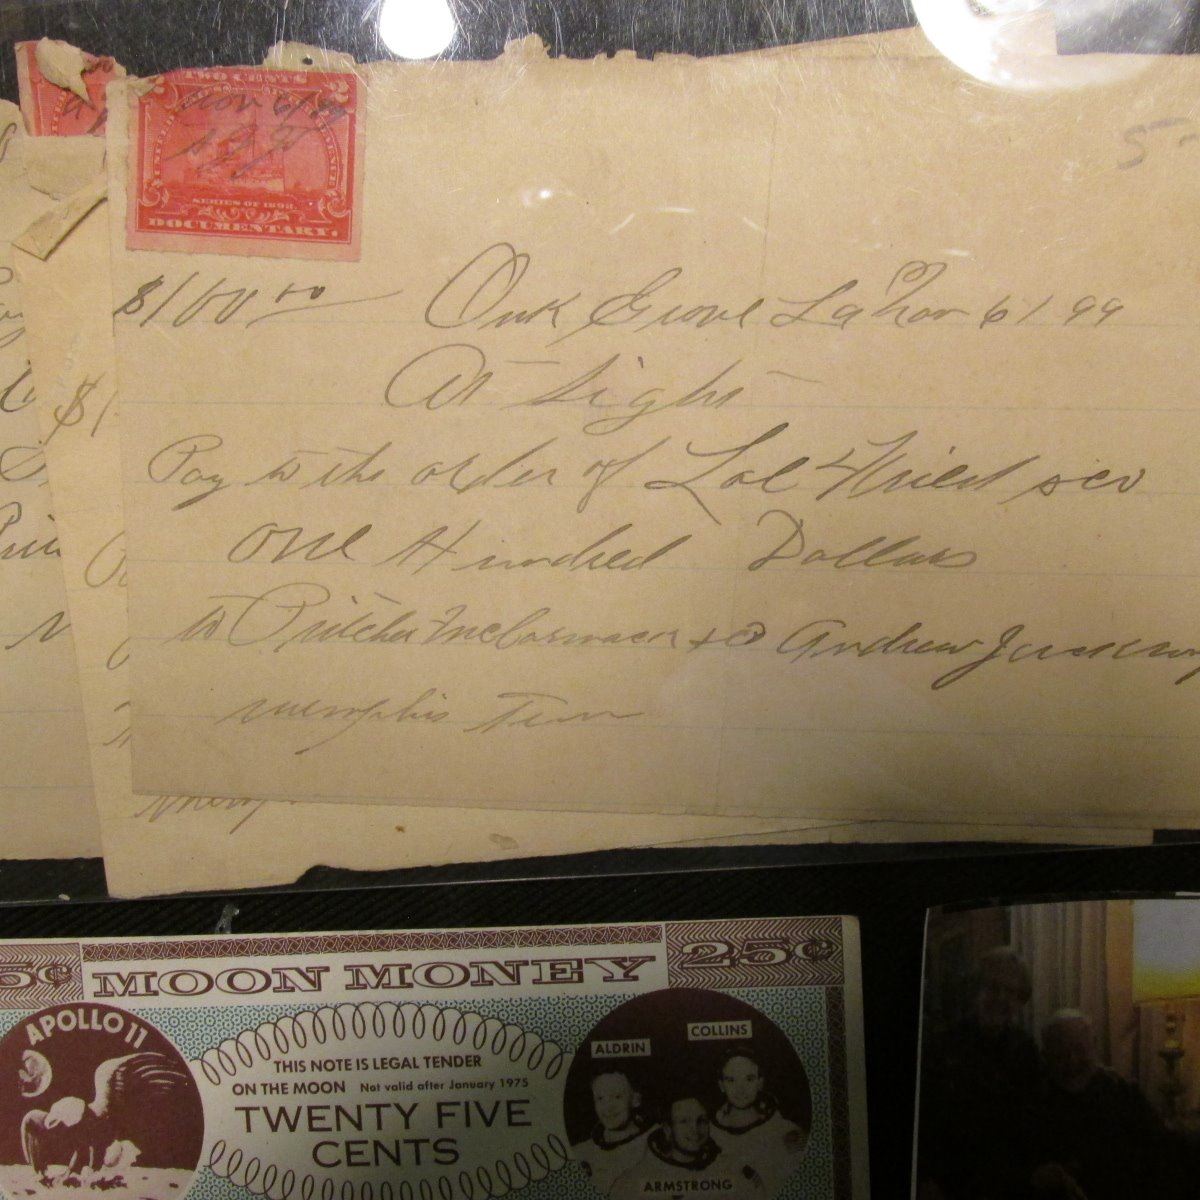 TWO CENTS 2
Nov 6/99
SERIES OF 1898.
DOCUMENTARY.
5-
$100.00 Oak Grove La Nov 6/99
At Sight
Pay to the order of
One Hundred Dollars
to McCormack + Co Andrew
Memphis Tenn
$1
5¢ MOON MONEY 25¢
APOLLO 11
THIS NOTE IS LEGAL TENDER
ON THE MOON Not valid after January 1975
TWENTY FIVE
CENTS
ALDRIN
COLLINS
ARMSTRONG